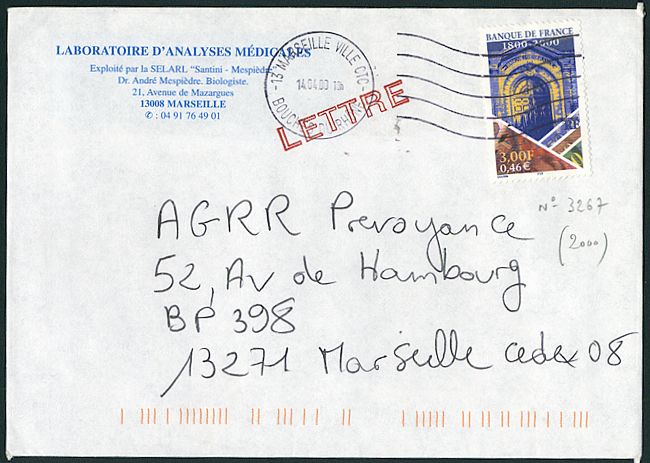 LABORATOIRE D'ANALYSES MÉDICALES
Exploité par la SELARL "Santini - Mespièdre"
Dr. André Mespièdre. Biologiste.
21, Avenue de Mazargues
13008 MARSEILLE
✆ : 04 91 76 49 01
13 MARSEILLE VILLE CTC
14.04.00 13h
LETTRE
BANQUE DE FRANCE
1800-2000
RF
3,00F
0,46€
N° 3267
(2000)
AGRR Prevoyance
52, Av de Hambourg
BP 398
13271 Marseille cedex 08